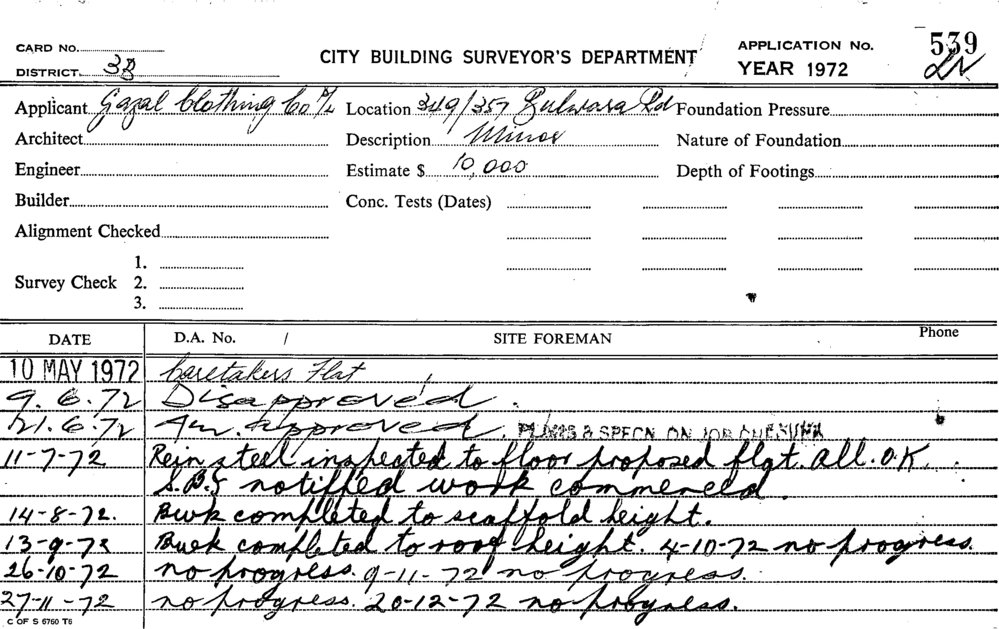 CARD No.
DISTRICT 3B
CITY BUILDING SURVEYOR'S DEPARTMENT
APPLICATION No. 539
YEAR 1972
Applicant Gazal Clothing Co P/L Location 349/357 Bulwara Rd Foundation Pressure
Architect Description Minor Nature of Foundation
Engineer Estimate $ 10,000 Depth of Footings
Builder Conc. Tests (Dates)
Alignment Checked
1.
Survey Check 2.
3.
DATE D.A. No. / SITE FOREMAN Phone
10 MAY 1972 Caretakers Flat
9.6.72 Disapproved.
21.6.72 Approved. PLANS & SPECN ON JOB
11-7-72 Rein steel inspected to floor proposed flat. all. O.K.
notified work commenced.
14-8-72. completed to scaffold height.
13-9-72 completed to roof height. 4-10-72 no progress.
26-10-72 no progress. 9-11-72 no progress.
27-11-72 no progress. 20-12-72 no progress.
C OF S 6760 T6